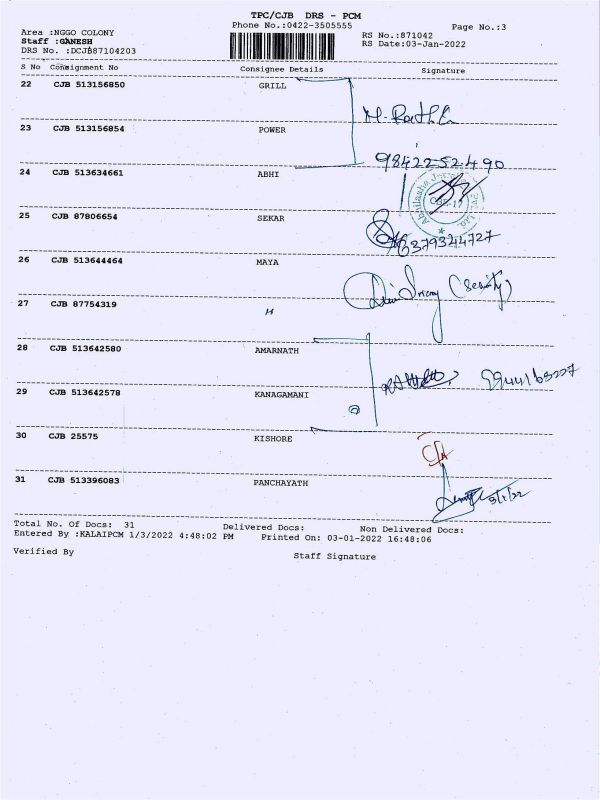 TPC/CJB DRS - PCM
Phone No.:0422-3505555
Page No.:3
Area :NGGO COLONY
Staff :GANESH
DRS No. :DCJB87104203
RS No.:871042
RS Date:03-Jan-2022
S No Consignment No Consignee Details Signature
22 CJB 513156850 GRILL
23 CJB 513156854 POWER
9842252490
24 CJB 513634661 ABHI
25 CJB 87806654 SEKAR
6379324727
26 CJB 513644464 MAYA
(Security)
27 CJB 87754319 "
28 CJB 513642580 AMARNATH
29 CJB 513642578 KANAGAMANI
30 CJB 25575 KISHORE
31 CJB 513396083 PANCHAYATH
3/1/22
Total No. Of Docs: 31 Delivered Docs: Non Delivered Docs:
Entered By :KALAIPCM 1/3/2022 4:48:02 PM Printed On: 03-01-2022 16:48:06
Verified By Staff Signature